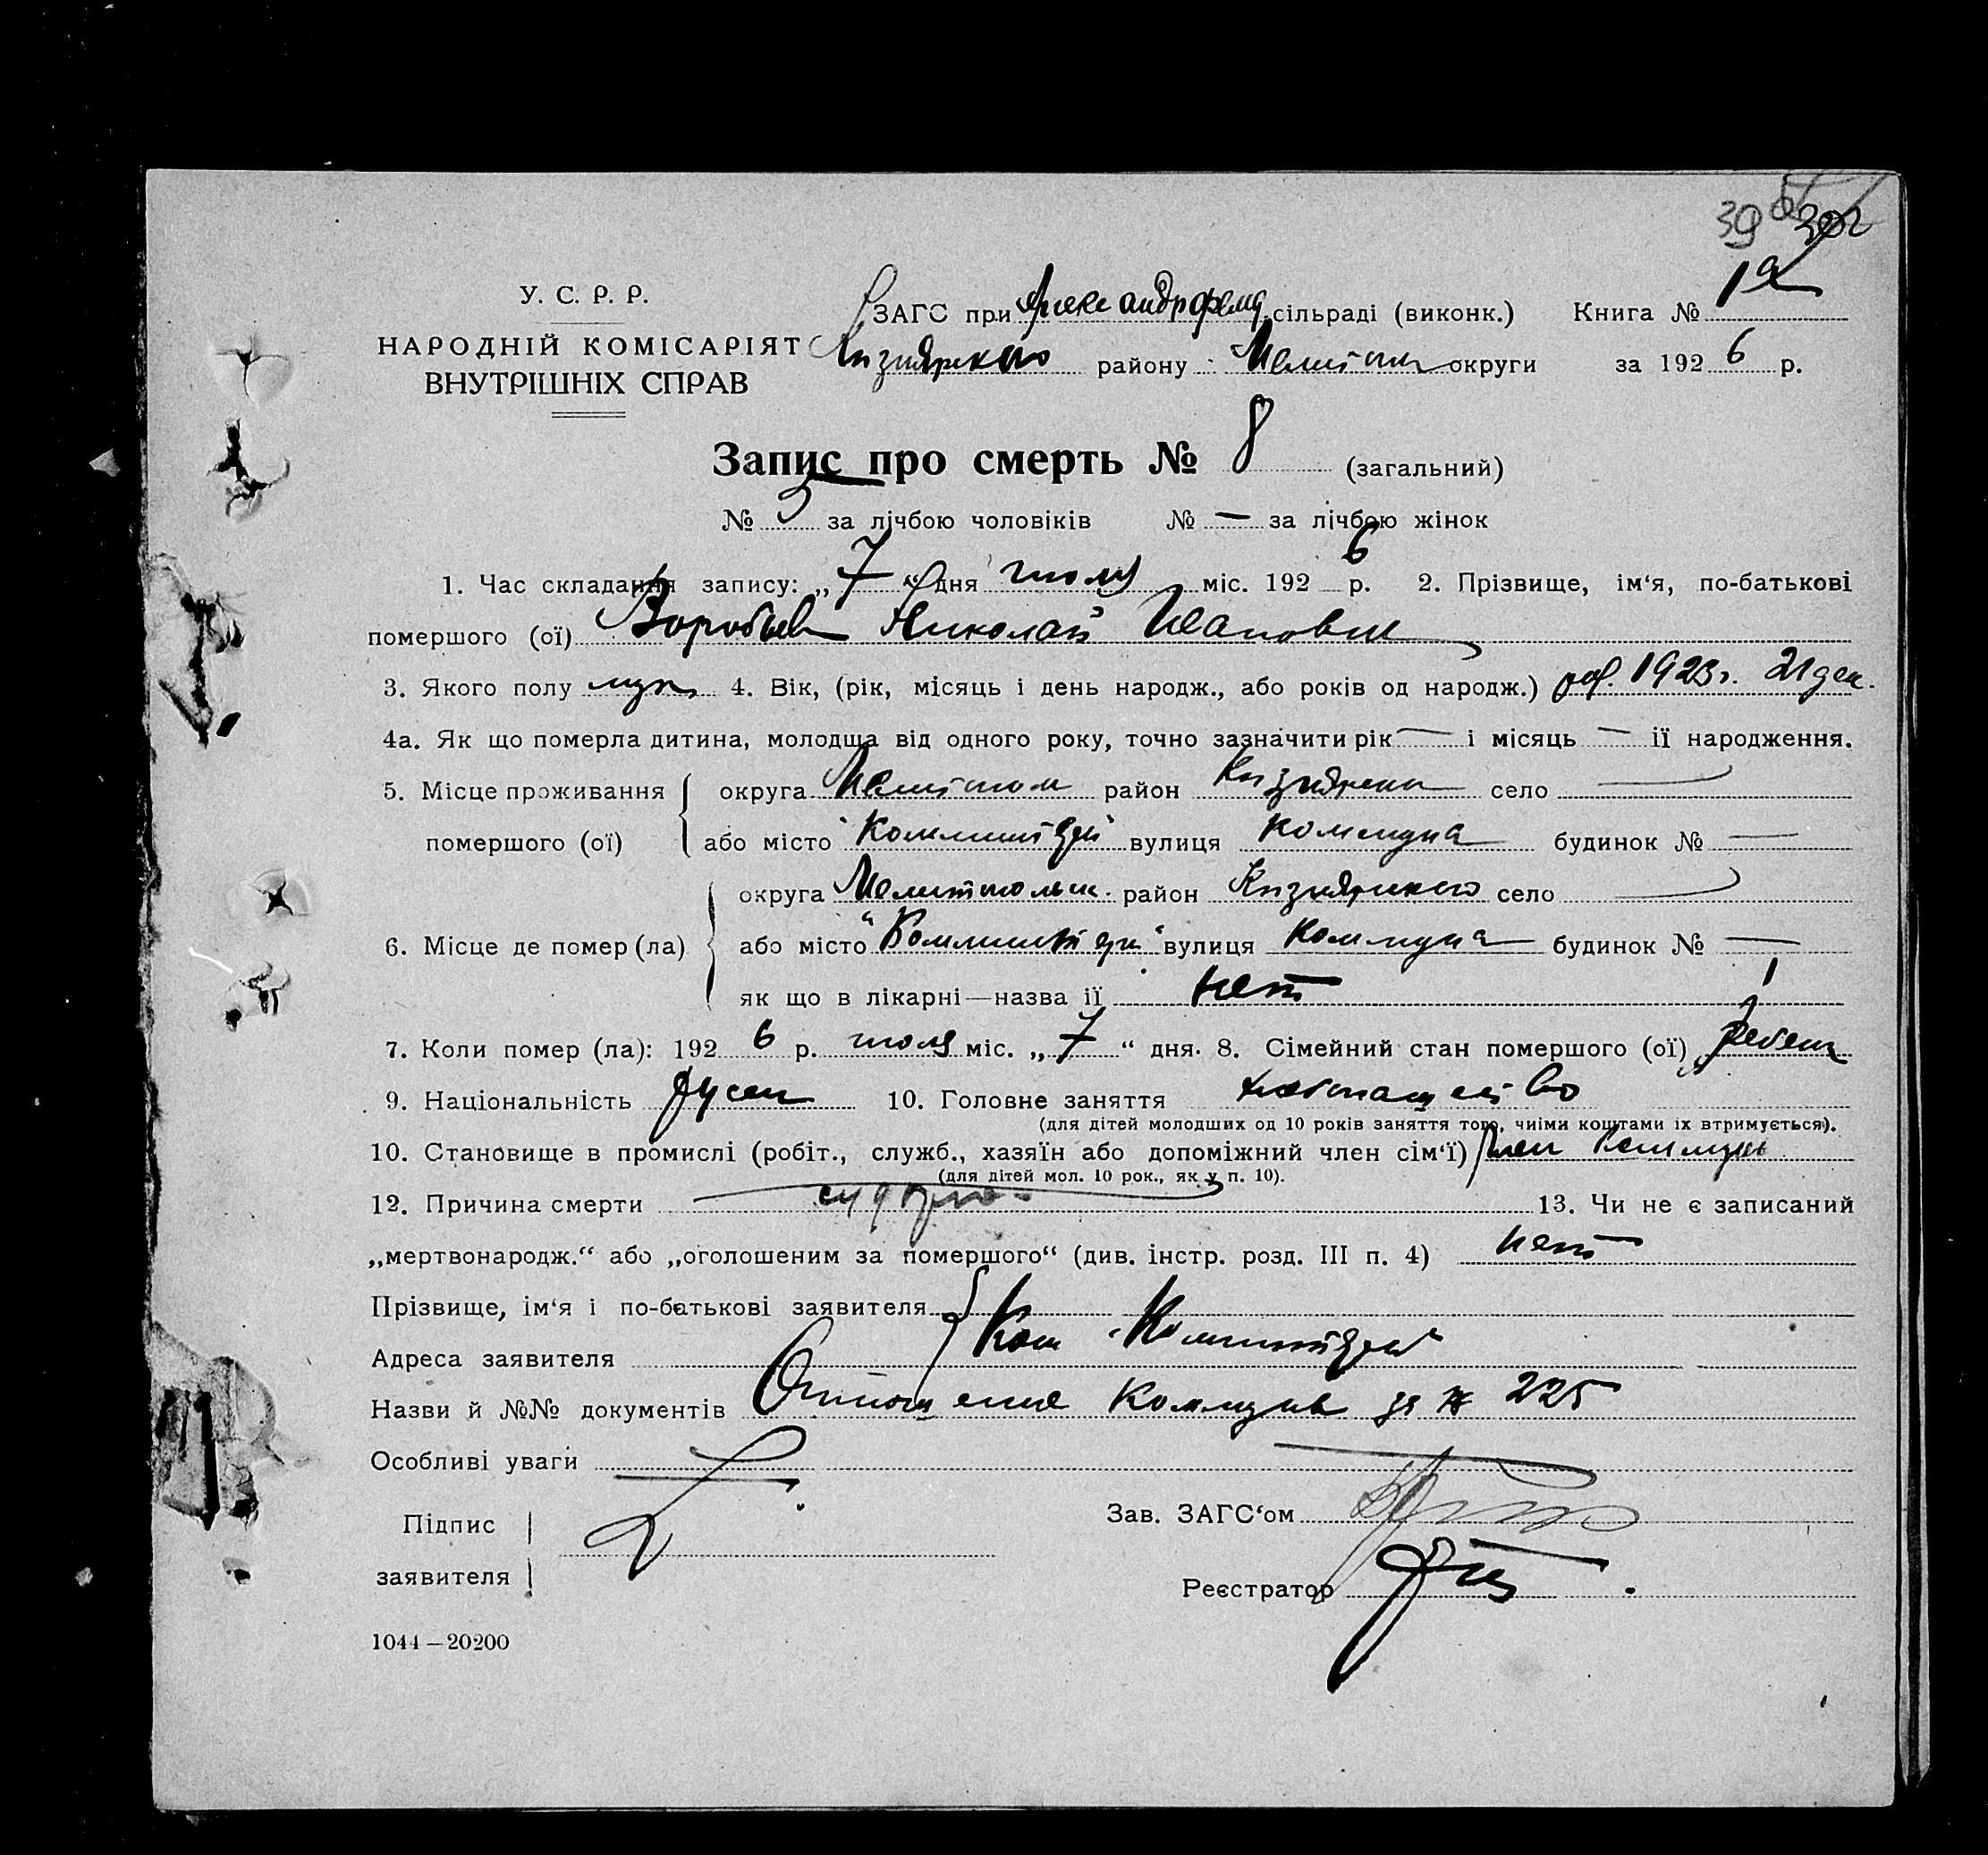 39
У. С. Р. Р.
НАРОДНІЙ КОМІСАРІЯТ
ВНУТРІШНІХ СПРАВ
ЗАГС при Александрфельд. сільраді (виконк.) Книга № 1а
району Мелитоп округи за 192 6 р.
Запис про смерть № 8 (загальний)
№ 5 за лічбою чоловіків № — за лічбою жінок
1. Час складання запису: „ 7 “ дня июля міс. 192 6 р. 2. Прізвище, ім‘я, по-батькові
помершого (ої) Воробьев Николай Иванович
3. Якого полу муж. 4. Вік, (рік, місяць і день народж., або років од народж.) род. 1923 г. 21 дек.
4а. Як що померла дитина, молодща від одного року, точно зазначити рік — і місяць — її народження.
5. Місце проживання округа Мелитоп район село —
помершого (ої) або місто вулиця коммуна будинок № —
округа Мелитопольск. район село —
6. Місце де помер (ла) або місто вулиця коммуна будинок № —
як що в лікарні—назва її нет
7. Коли помер (ла): 192 6 р. июля міс. „ 7 “ дня. 8. Сімейний стан помершого (ої)
9. Національність русск 10. Головне заняття хлебопашество
(для дітей молодших од 10 років заняття того, чиїми коштами їх втримується).
10. Становище в промислі (робіт., служб., хазяїн або допоміжний член сім‘ї) член Коммуны
(для дітей мол. 10 рок., як у п. 10).
12. Причина смерти 13. Чи не є записаний
„мертвонародж.“ або „оголошеним за помершого“ (див. інстр. розд. III п. 4) нет
Прізвище, ім‘я і по-батькові заявителя
Адреса заявителя
Назви й №№ документів Отношение Коммуны за № 225
Особливі уваги
Підпис
заявителя
Зав. ЗАГС‘ом
Реєстратор
1044—20200